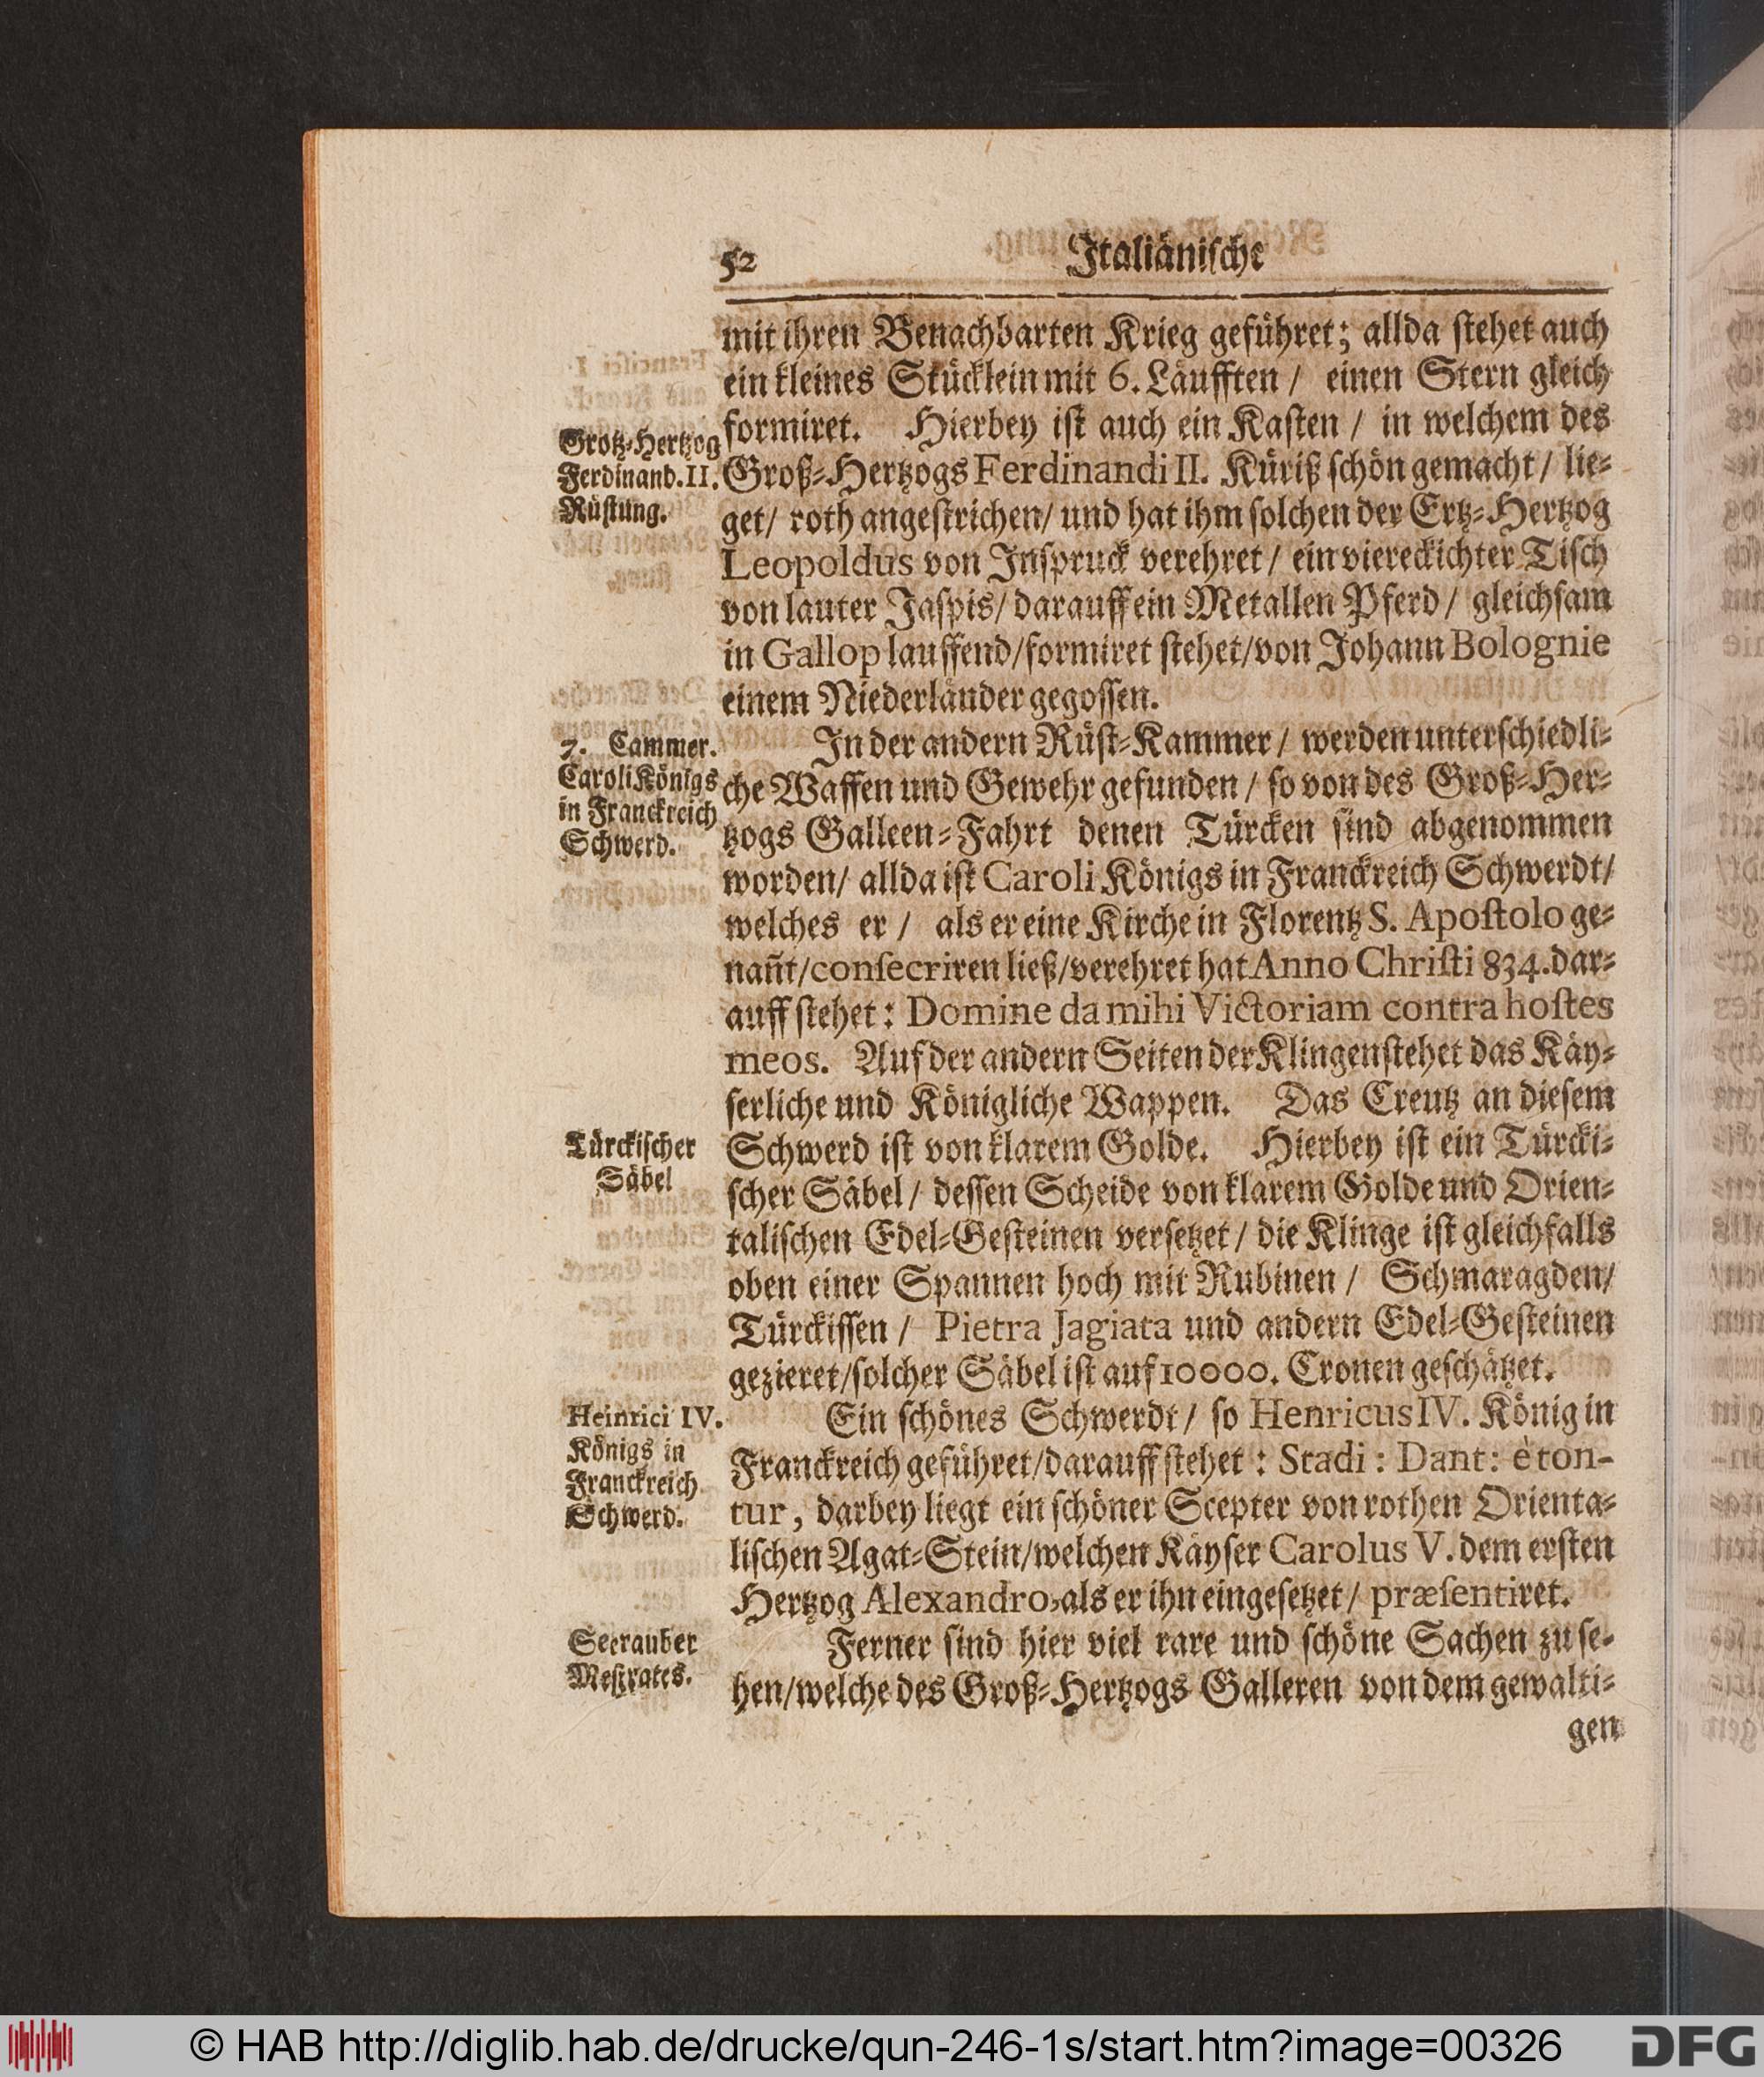 52 Italiänische
mit ihren Benachbarten Krieg geführet; allda stehet auch
ein kleines Stücklein mit 6. Läufften / einen Stern gleich
formiret. Hierbey ist auch ein Kasten / in welchem des
Groß-Hertzogs Ferdinandi II. Küriß schön gemacht / lie-
get / roth angestrichen / und hat ihm solchen der Ertz-Hertzog
Leopoldus von Inspruck verehret / ein viereckichter Tisch
von lauter Jaspis / darauff ein Metallen Pferd / gleichsam
in Gallop lauffend / formiret stehet / von Johann Bolognie
einem Niederländer gegossen.
Grotz-Hertzog
Ferdinand. II.
Rüstung.
In der andern Rüst-Kammer / werden unterschiedli-
che Waffen und Gewehr gefunden / so von des Groß-Her-
tzogs Galleen-Fahrt denen Türcken sind abgenommen
worden / allda ist Caroli Königs in Franckreich Schwerdt /
welches er / als er eine Kirche in Florentz S. Apoſtolo ge-
nañt / conſecriren ließ / verehret hat Anno Chriſti 834. dar-
auff stehet: Domine da mihi Victoriam contra hoſtes
meos. Auf der andern Seiten der Klingen stehet das Käy-
serliche und Königliche Wappen. Das Creutz an diesem
Schwerd ist von klarem Golde. Hierbey ist ein Türcki-
scher Säbel / dessen Scheide von klarem Golde und Orien-
talischen Edel-Gesteinen versetzet / die Klinge ist gleichfalls
oben einer Spannen hoch mit Rubinen / Schmaragden /
Türckissen / Pietra Jagiata und andern Edel-Gesteinen
gezieret / solcher Säbel ist auf 10000. Cronen geschätzet.
7. Cammer.
Caroli Königs
in Franckreich
Schwerd.
Türckischer
Säbel
Ein schönes Schwerdt / so Henricus IV. König in
Franckreich geführet / darauff stehet: Stadi: Dant: è ton-
tur, darbey liegt ein schöner Scepter von rothen Orienta-
lischen Agat-Stein / welchen Käyser Carolus V. dem ersten
Hertzog Alexandro, als er ihn eingesetzet / præſentiret.
Heinrici IV.
Königs in
Franckreich
Schwerd.
Ferner sind hier viel rare und schöne Sachen zu se-
hen / welche des Groß-Hertzogs Galleren von dem gewalti-
gen
Seerauber
© HAB http://diglib.hab.de/drucke/qun-246-1s/start.htm?image=00326
DFG